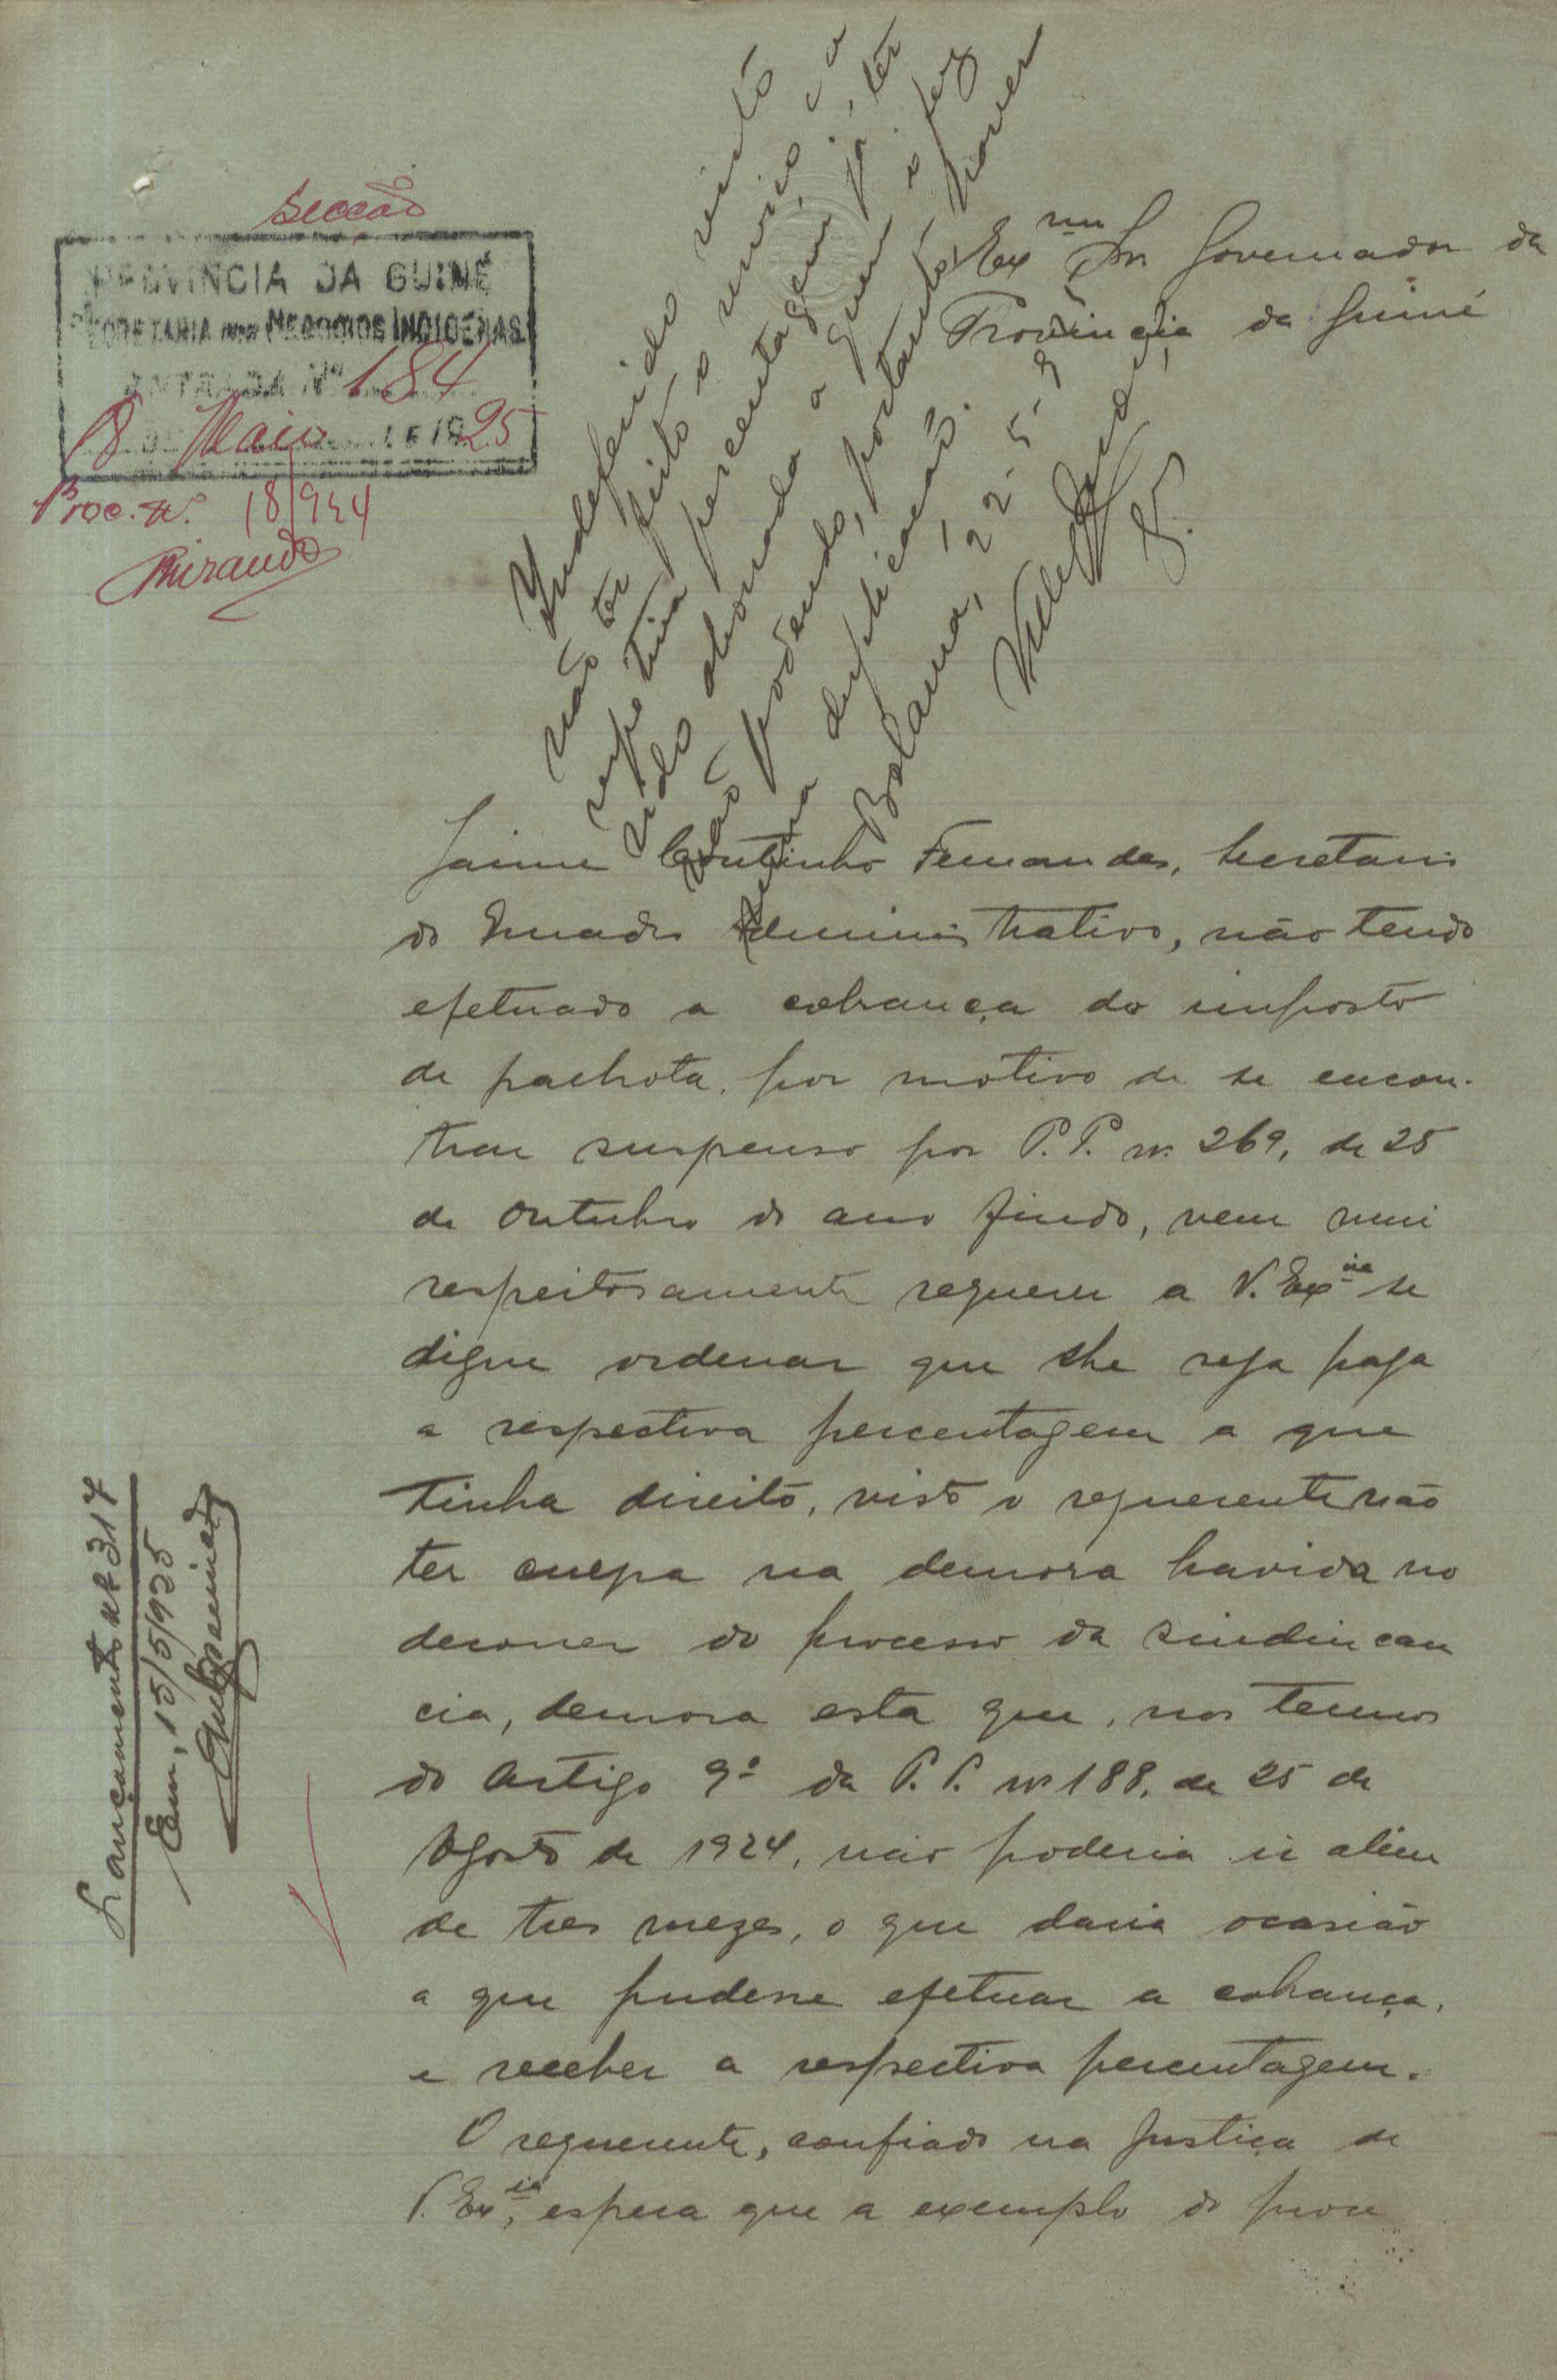 Secção
PROVINCIA DA GUINÉ
SECRETARIA DOS NEGOCIOS INDIGENAS
ENTRADA Nº 184
18 DE Maio DE 1925
Proc. nº 18/924
Miranda
Indeferido visto
não ter feito o serviço e a
respetiva percentagem já ter
sido abonada a quem o fez
não podendo, portanto, haver
duplicação.
Bolama, 22-5-9
Exmo Snr Governador da
Provincia da Guiné
Jaime Coutinho Fernandes, Secretario
do Quadro Administrativo, não tendo
efetuado a cobrança do imposto
de palhota, por motivo de se encon-
trar suspenso por P. P. nº 269, de 25
de Outubro do ano findo, vem mui
respeitosamente requerer a V. Excia se
digne ordenar que lhe seja paga
a respectiva percentagem a que
tinha direito, visto o requerente não
ter culpa na demora havida no
decorrer do processo da sindican
cia, demora esta que, nos termos
do artigo 9º da P. P. nº 188, de 25 de
Agosto de 1924, não poderia ir alem
de tres mezes, o que daria ocasião
a que pudesse efetuar a cobrança,
e receber a respectiva percentagem.
O requerente, confiado na Justiça de
V. Excia, espera que a exemplo do proce
Lançamento nº 317
Em, 15/5/925